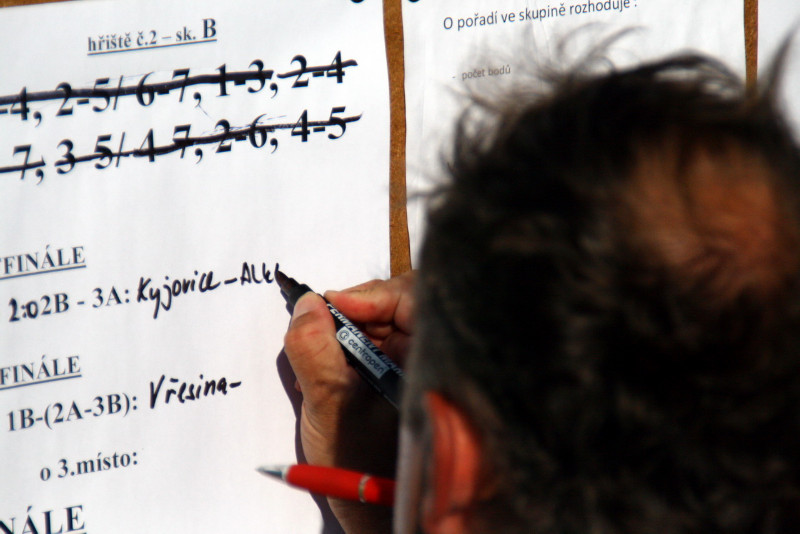 hřiště č.2 – sk. B
-4, 2-5/ 6-7, 1-3, 2-4
7, 3-5/ 4-7, 2-6, 4-5
FINÁLE
2:0 2B - 3A: Kyjovice – Al
FINÁLE
1B-(2A-3B): Vřesina-
o 3.místo:
NÁLE
O pořadí ve skupině rozhoduje :
- počet bodů
centropen